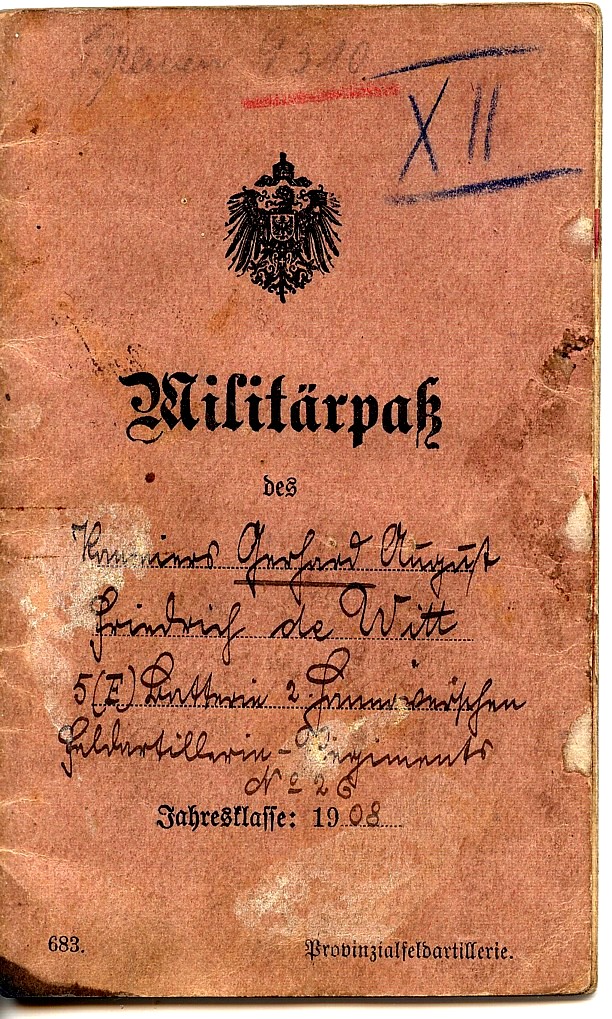 1310.
XII
Militärpaß
des
Kanoniers Gerhard August
Friedrich de Witt
5 (E) Batterie 2. Hannover'schen
Feldartillerie-Regiments
No 26
Jahresklasse: 1908
683. Provinzialfeldartillerie.